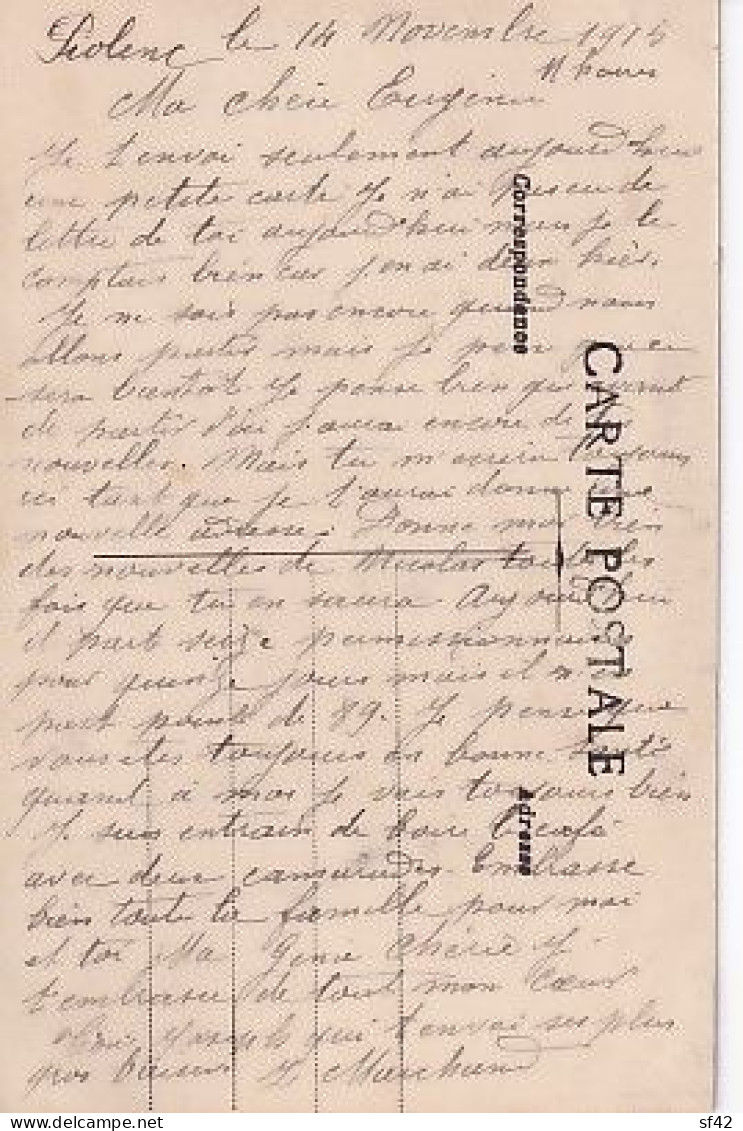 Piolenc le 14 Novembre 1915
11 heures
Ma chérie Eugénie
Je t'envoi seulement aujourd'hui
une petite carte Je n'ai pas eu de
lettre de toi aujourd'hui mais je le
comptais bien car j'en ai deux hier.
Je ne sais pas encore quand nous
allons partir mais je pense que ce
sera bientot Je pense bien que avant
de partir d'ici j'aurai encore de tes
nouvelles. Mais tu m'ecrira toujours
ici tant que je t'aurai donné une
nouvelle adresse. Donne moi bien
des nouvelles de Nicolas toutes les
fois que tu en saura Aujourd'hui
il part seize permissionnaires
pour quinze jours mais il n'en
part point de 89. Je pense que
vous etes toujours en bonne santé
quand à moi je vais toujours bien
Je suis entrain de boire le café
avec deux camarades. Embrasse
bien toute la famille pour moi
et toi Ma Génie Chérie Je
t'embrasse de tout mon Cœur
Joseph qui t'envoi ses plus
gos baisers J Marchand
Correspondance
CARTE POSTALE
Adresse
sf42